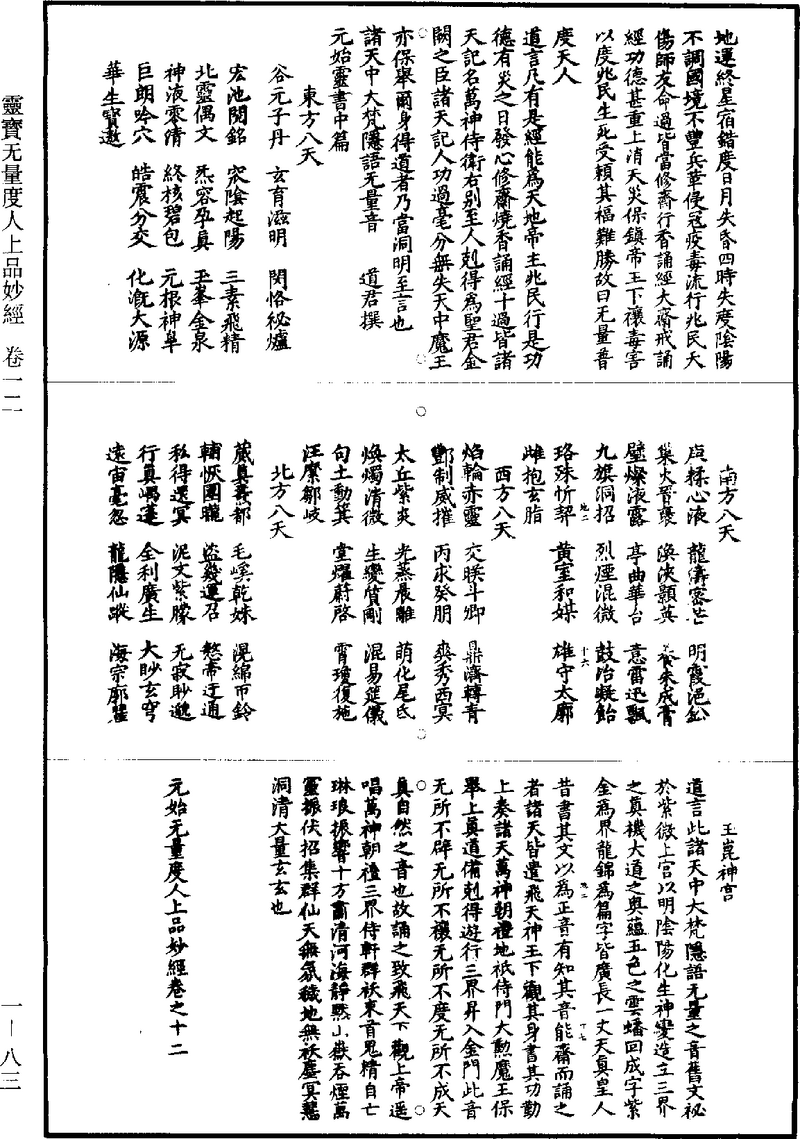 靈寶无量度人上品妙經　卷一二
地運終星宿錯度日月失昏四時失度陰陽
不調國境不豐兵革侵冦疫毒流行兆民夭
傷師友命過皆當修齋行香誦經大齋戒誦
經功德甚重上消天災保鎮帝王下禳毒害
以度兆民生死受賴其福難勝故曰无量普
度天人
道言乃有是經能爲天地帝主兆民行是功
德有災之日發心修齋燒香誦經十過皆諸
天記名萬神侍衛右别至人剋得爲聖君金
闕之臣諸天記人功過毫分無失天中魔王
亦保舉爾身得道者乃當洞明至言也
諸天中大梵隱語无量音　道君撰
元始靈書中篇
東方八天
谷元子丹　玄育滋明　閔恪秘爐
宏池閱銘　寀陰起陽　三素飛精
北靈偶文　炁容孕真　玉峯金泉
神液零清　終核碧包　元根神阜
巨朗吟穴　皓震分交　化漑大源
華生寶遨
南方八天
龍儔密芒　明霞浥
渙浹顥英　朱成膏
壁燦液露　亭曲華台　意雷迅飄
九旗洞招　烈煙混微　鼓冶凝飴
珞殊忻挈　黄室和媒　雄守太廓
雌抱玄脂
西方八天
焰輪赤靈　交睽斗卿　鼎濟轉青
酆制威摧　丙求癸朋　爽秀西冥
太丘紫炎　光蒸晨離　萌化尾氐
煥燭清微　生變質剛　混易莚儀
句土動箕　堂燿蔚啓　霄瓊復施
汪縻鄒岐
北方八天
葳真 都　毛嵠乾姝　滉綿帀鈴
輔恢團矓　盜幾運召　煞帝迂通
私得還冥　泥文紫朦　无寂眇邈
行真嵎蓬　全利廣生　大眇玄穹
遠宙毫忽　龍隱仙蹤　海宗廓
玉崑神宫
道言此諸天中大梵隱語无量之音舊文秘
於紫微上宫以明陰陽化生神變造立三界
之真機大道之奥蘊五色之雲蟠回成字紫
金爲界龍錦爲篇字皆廣長一丈天真皇人
昔書其文以爲正音有知其音能齋而誦之
者諸天皆遣飛天神王下觀其身書其功勤
上奏諸天萬神朝禮地祇侍門大勲魔王保
舉上真道備剋得遊行三界昇入金門此音
无所不辟无所不禳无所不度无所不成天
真自然之音也故誦之致飛天下觀上帝遥
唱萬神朝禮三界侍軒群祅束首鬼精自亡
琳琅振響十方肅清河海靜默山嶽吞煙萬
靈振伏招集群仙天無氛穢地無祅塵冥慧
洞清大量玄玄也
元始无量度人上品妙經卷之十二
一—八三